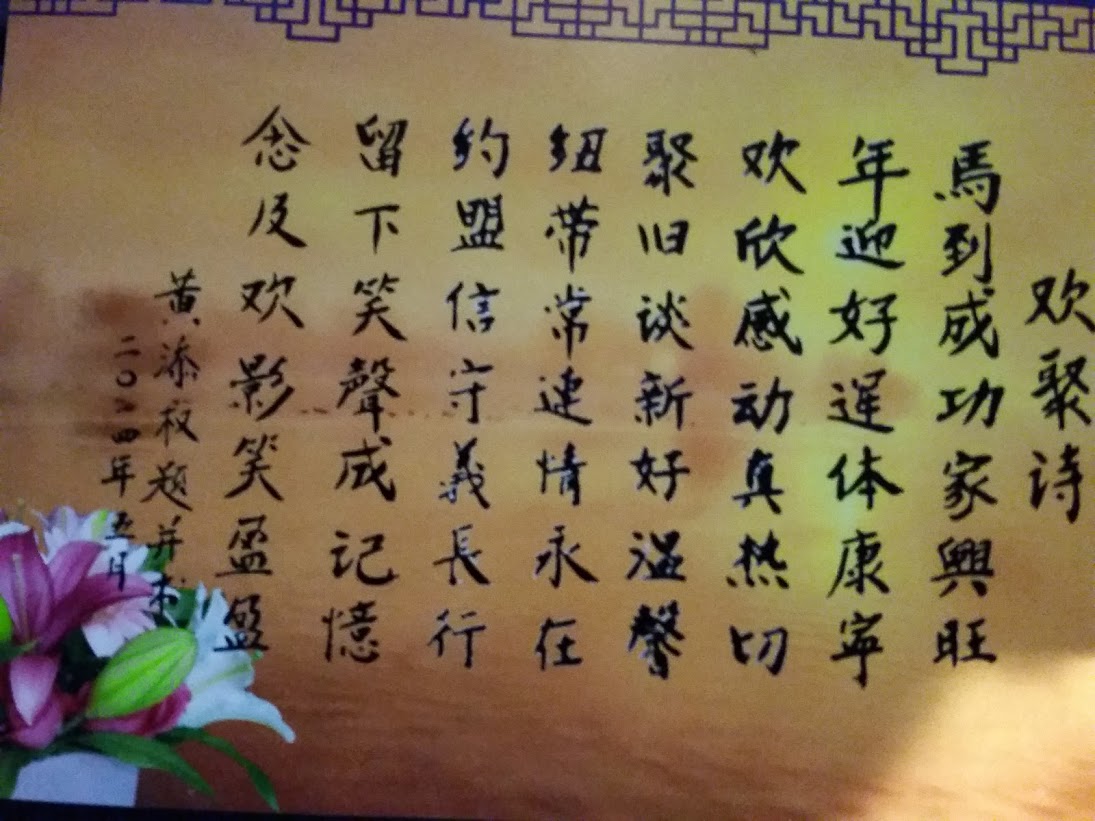 欢聚诗
馬到成功家興旺
年迎好運体康寧
欢欣感动真热切
聚旧谈新好温馨
纽带常連情永在
约盟信守義長行
留下笑聲成记憶
念及欢影笑盈盈
黄添权题并书
二〇一四年五月